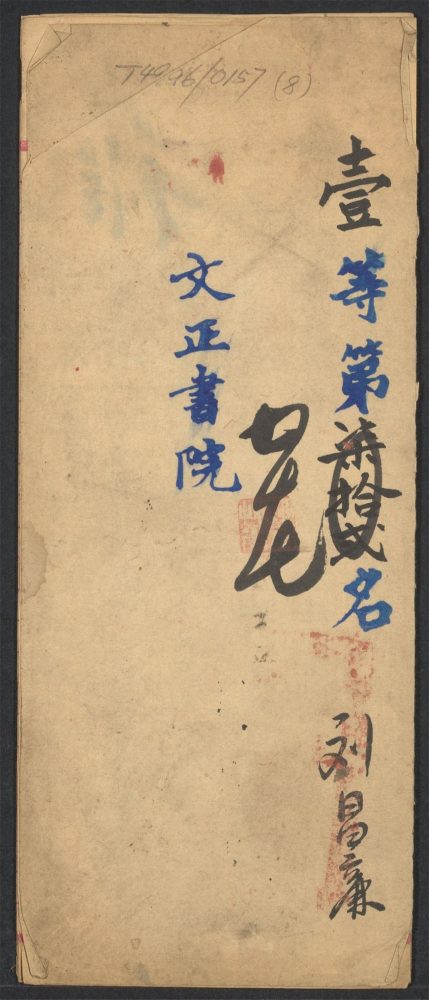 T4996/0157 (8)
壹等第柒拾弍名
刘昌廉
文正書院